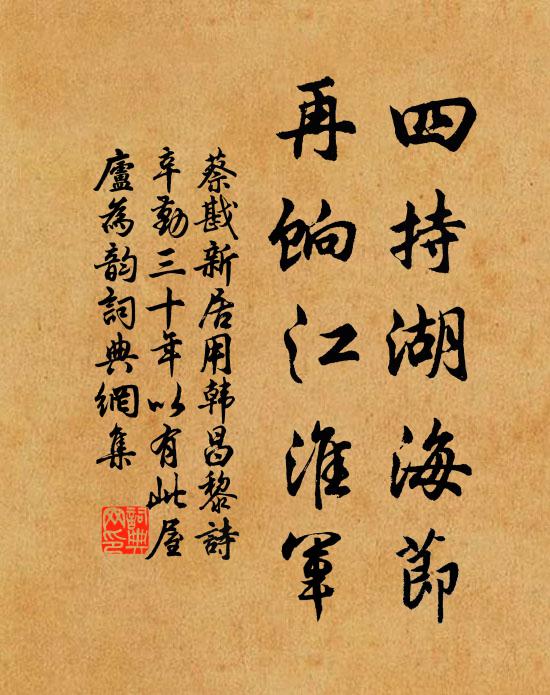 四持湖海節
再餉江淮軍
蔡戡新居用韩昌黎詩
辛勤三十年以有此屋
廬為韵詞典網集
詞典網印